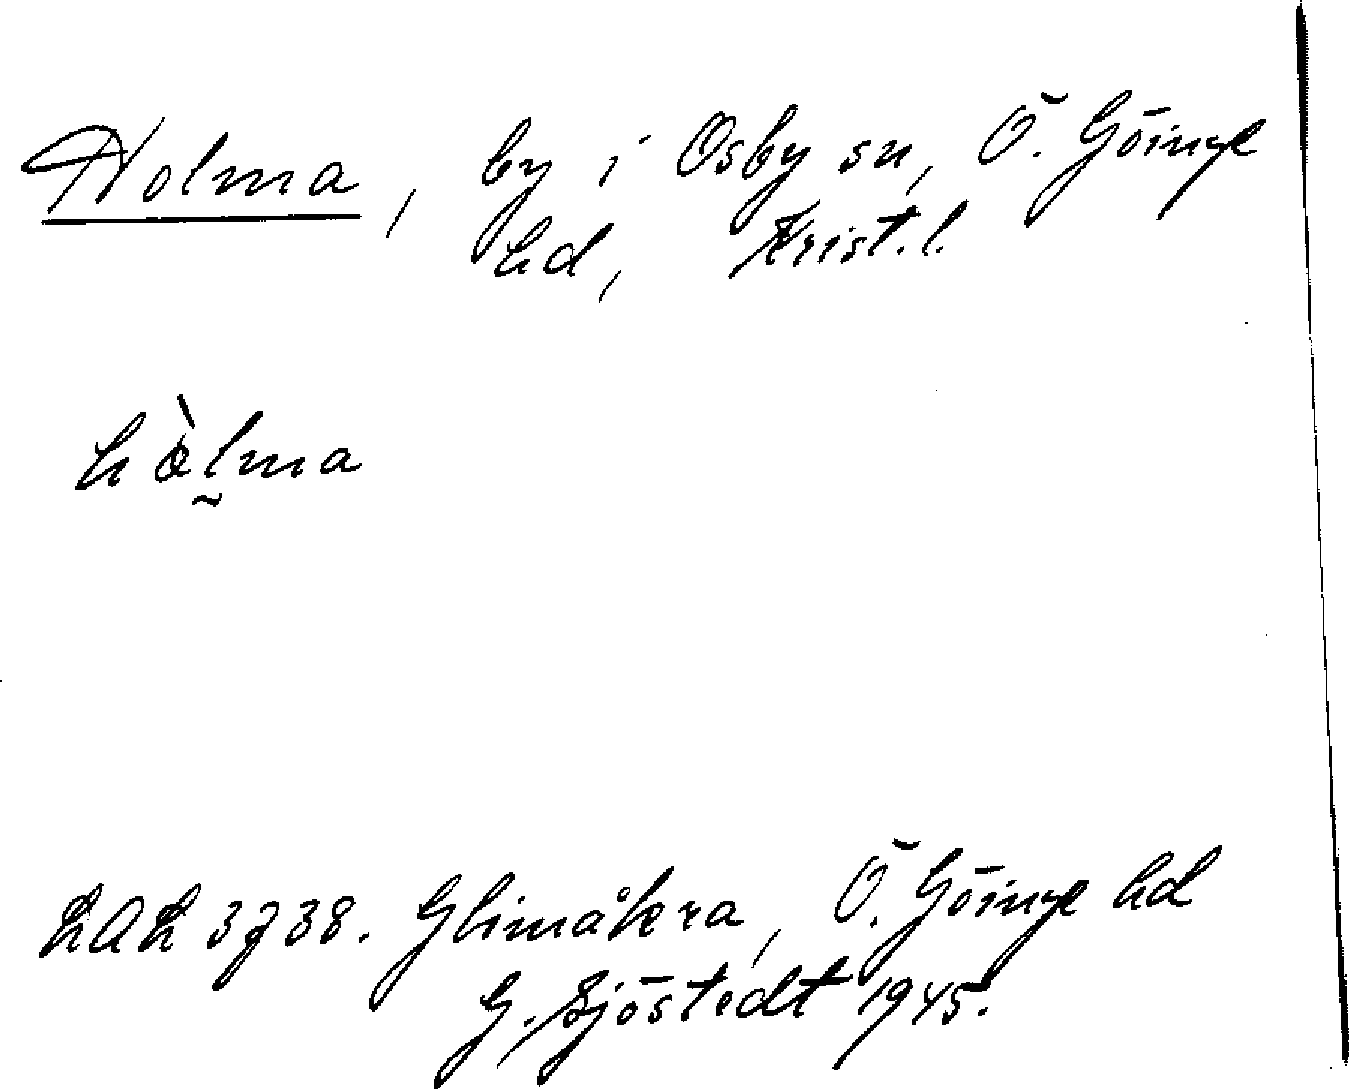 Holma, by i Osby sn, Ö. Göinge
hd, Krist. l.
hòl̰ma
LAL 3738. Glimåkra, Ö. Göinge hd
G. Sjöstedt 1945.